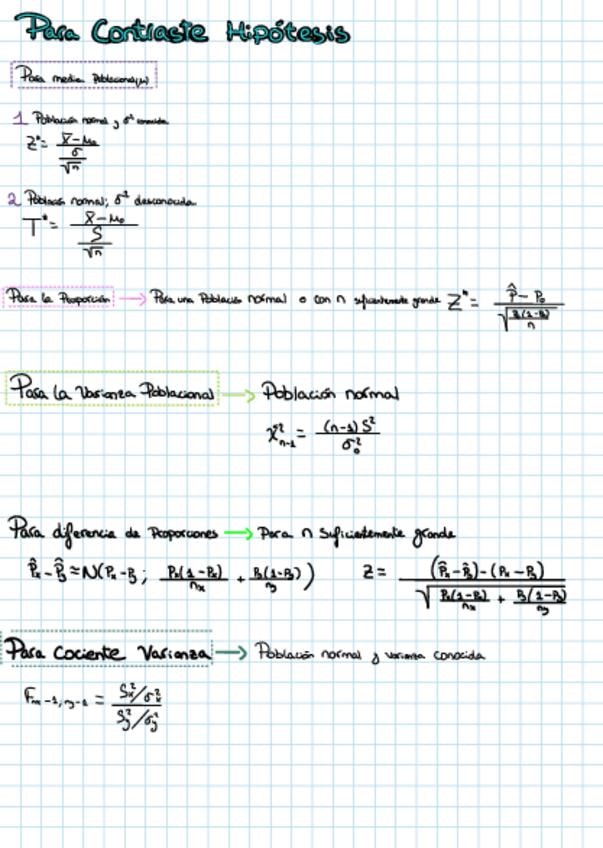 Para Contraste Hipótesis
Para media Poblacional(μ)
1 Población normal y σ² conocida
Z* = (x̄ - μ₀) / (σ/√n)
2 Población normal; σ² desconocida
T* = (x̄ - μ₀) / (S/√n)
Para la Proporción → Para una Población normal o con n suficientemente grande Z* = (p̂ - P₀) / √(P₀(1-P₀)/n)
Para la Varianza Poblacional → Población normal
χ²ₙ₋₁ = (n-1)S² / σ₀²
Para diferencia de Proporciones → Para n suficientemente grande
P̂x - P̂y ≈ N(Px - Py ; Px(1-Px)/nx + Py(1-Py)/ny) Z = ((P̂x - P̂y) - (Px - Py)) / √(Px(1-Px)/nx + Py(1-Py)/ny)
Para Cociente Varianza → Población normal y varianza conocida
Fnx-1, ny-1 = (Sx²/σx²) / (Sy²/σy²)